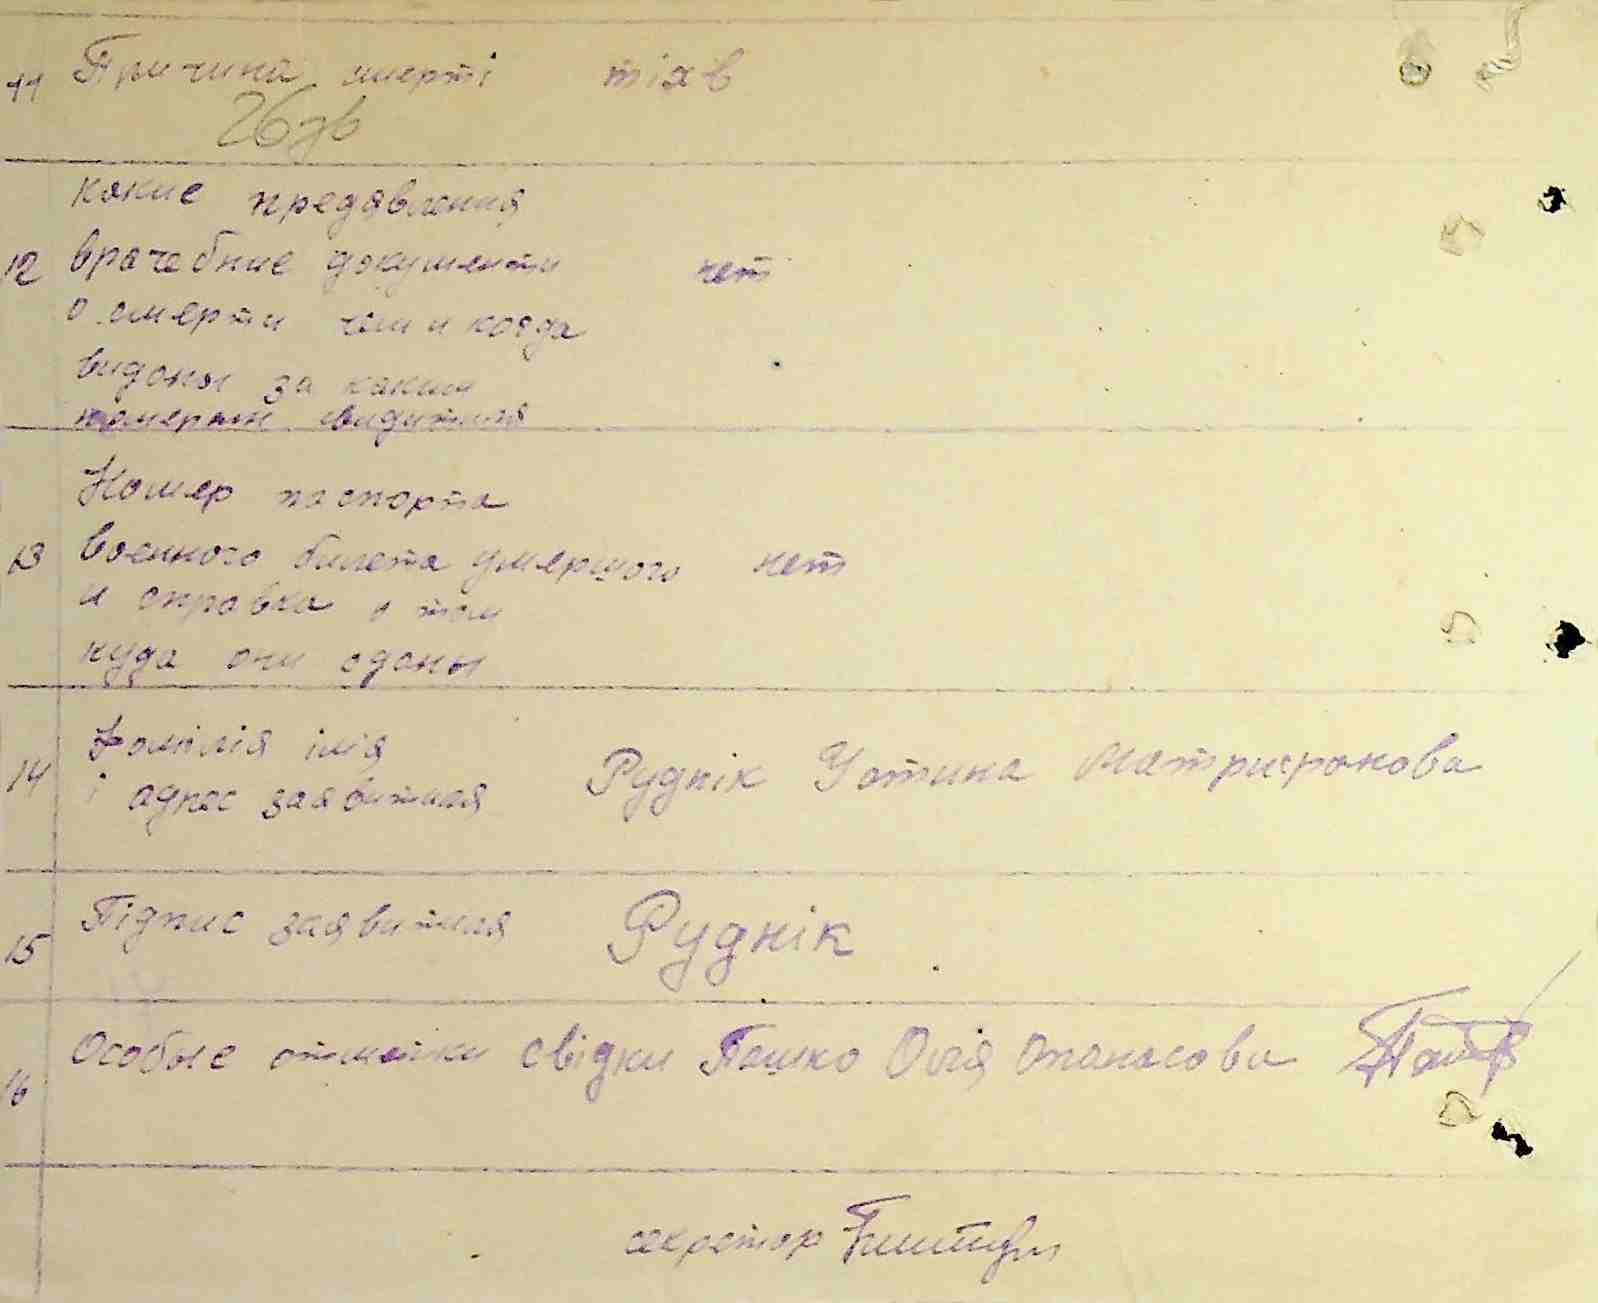 11 Причина смерті тіхв
26
какие предявления
12 врачебние документи нет
о смерти чем и когда
видоны за каким
номером свидитиля
Номер паспорта
13 военного билета умершого нет
и справка о том
куда они сдоны
Фомілія імія
14 і адрес заявитиля Руднік Устина Матрифонова
15 Підпис заявитиля Руднік
16 Особые отметки свідки Пашко Оля Опонасова
секретор